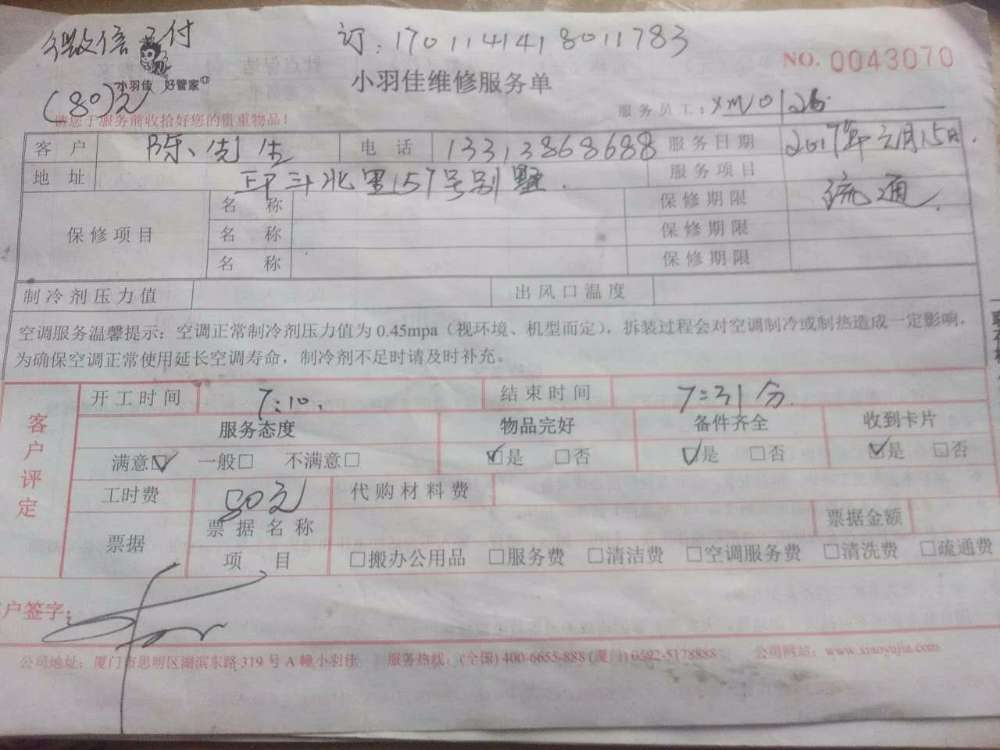 微信支付 订:1701141418011783
小羽佳 好管家 小羽佳维修服务单 NO. 0043070
(80)元 服务员工:XM0126
请您于服务前收拾好您的贵重物品!
客户 陈先生 电话 13313868688 服务日期 2017年元月15日.
地址 斗北里157号别墅. 服务项目 疏通.
保修项目 名称 保修期限
名称 保修期限
名称 保修期限
制冷剂压力值 出风口温度
空调服务温馨提示:空调正常制冷剂压力值为0.45mpa(视环境、机型而定),拆装过程会对空调制冷或制热造成一定影响,
为确保空调正常使用延长空调寿命,制冷剂不足时请及时补充。
客户评定 开工时间 7:10. 结束时间 7:31分.
服务态度 物品完好 备件齐全 收到卡片
满意☑ 一般□ 不满意□ ☑是 □否 ☑是 □否 ☑是 □否
工时费 80元 代购材料费
票据 票据名称 票据金额
项目 □搬办公用品 □服务费 □清洁费 □空调服务费 □清洗费 □疏通费
客户签字:
公司地址:厦门市思明区湖滨东路319号A幢小羽佳 服务热线:(全国)400-6655-888(厦门)0592-5178888 公司网站:www.xiaoyujia.com